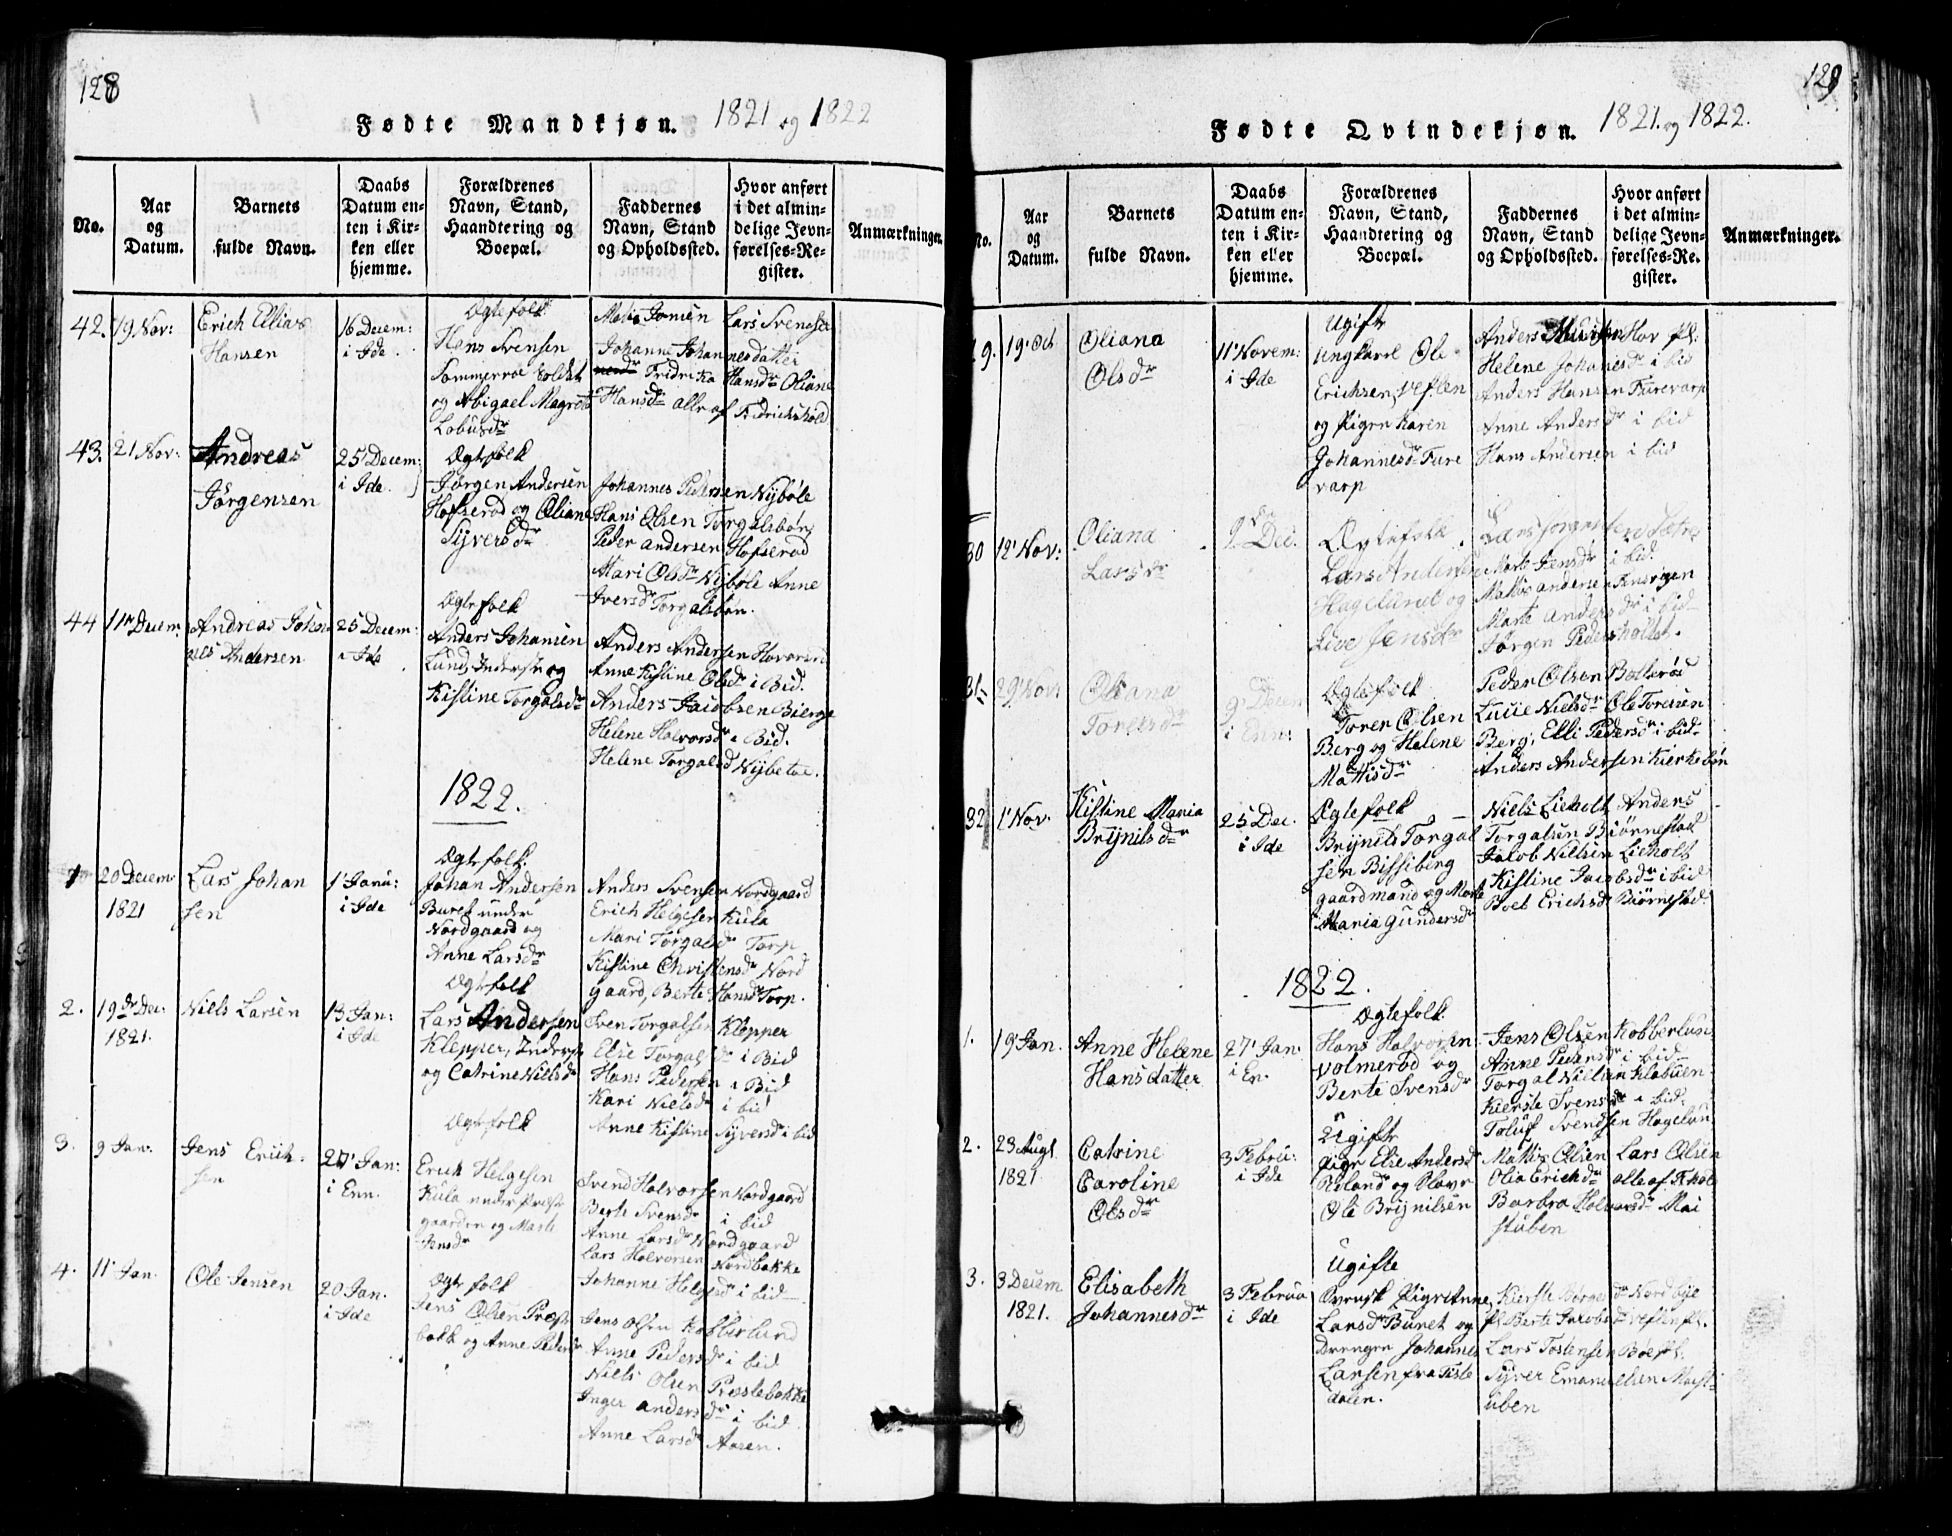 128
Fødte Mandkjøn. 1821 og 1822
No.
Aar
og
Datum.
Barnets
fulde Navn.
Daabs
Datum en-
ten i Kir-
ken eller
hjemme.
Forældrenes
Navn, Stand,
Haandtering og
Boepæl.
Faddernes
Navn, Stand
og Opholdssted.
Hvor anført
i det almin-
delige Jevn-
førelses-Re-
gister.
Anmærkninger.
42. 19 Nov:
Erich Elias
Hansen
16 Decem:
i Ide.
Ægtefolk
Hans Svensen
Sommerroe Soldat
og Abigael Magrete
Johanne Johannesdatter
Fridrika Hansdr Oliane
Hansdr alle af Fredrichshald
43. 21 Nov:
Andreas
Jørgensen
25 Decem:
i Ide.
Ægtefolk
Jørgen Andersen
Hofserød og Oliane
Syversdr
Johannes Pedersen Nybøle
Hans Olsen Torgalsbøn
Peder Andersen Hofserød
Mari Olsdr Nybøle Anne
Iversdr Torgalsbøn.
44 11te Decem.
Andreas Johan
nes Andersen
25 Decem:
i Ide
Ægtefolk
Anders Johansen
Lund, Inderst og
Kistine Torgalsdr
Anders Andersen
Anne Kistine Olsdr i Bid.
Anders Jacobsen Bierge
Helene Halvorsdr i Bid.
Helene Torgalsd
1822.
1 20 Decem:
1821
Lars Johan
sen
1' Janu:
i Ide
Ægtefolk.
Johan Andersen
Buret under
Nordgaard og
Anne Larsdr
Anders Svensen Nordgaard
Erich Helgesen Kula
Mari Torgalsdr Torp
Kistine Christensdr Nord
gaard, Berte Hansdr Torp.
2. 19de Dec:
1821.
Niels Larsen
13 Jan:
i Ide
Ægtefolk
Lars Andersen
Klepper, Inderst
og Catrine Nielsdr
Sven Torgalsen Klepper
Else Torgalsdr i Bid
Hans Pedersen i Bid
Kari Nielsdr i bid
Anne Kistine Syversdr i bid
3. 9 Jan:
Jens Erich-
sen
27' Jan:
i Enn.
Ægtefolk
Erich Helgesen
Kula under Præste
gaarden og Marte
Jensdr
Svend Halvorsen Nordgaard
Berte Svensdr i bid
Anne Larsdr Nordgaard
Lars Halvorsen Nordbakke
Johanne Helgesdr i bid
4. 11' Jan.
Ole Jensen
20 Jan.
i Ide
Ægtefolk
Jens Olsen Præste
bakk og Anne Pedersdr
Jens Olsen Kobberlund
Anne Pedersdr i bid
Niels Olsen Præstebakke
Inger Andersdr i bid
Anne Larsdr Aasen.
129
Fødte Qvindekjøn. 1821. og 1822.
No.
Aar
og
Datum.
Barnets
fulde Navn.
Daabs
Datum en-
ten i Kir-
ken eller
hjemme.
Forældrenes
Navn, Stand,
Haandtering og
Boepæl.
Faddernes
Navn, Stand
og Opholdssted.
Hvor anført
i det almin-
delige Jevn-
førelses-Re-
gister.
Anmærkninger.
29. 19' Oct
Oliana
Olsdr
11' Novem:
i Ide
Ugift
ungkarl Ole
Erichsen, Veflen
og Pigen Karen
Johannesdr Fure
varp
Helene Johanesdr i bid
Anders Hansen Furevarp
Anne Andersdr i bid
Hans Andersen i bid
30 12' Nov:
Oliana
Larsdr
9' Dec.
Ægtefolk
Lars Andersen
og
Live Jensdr
Marte Jensdr i bid
Marte Andersdr i bid
Jørgen Peders
31. 29' Nov:
Oliana
Toresdr
9' Decem
i Enn:
Ægtefolk
Toren Olsen
Berg og Helene
Mattisdr
Peder Olsen
Lucie Nielsdr Ole Toresen
Berg, Elli Pedersdr i bid
Anders Andersen Kierkebøn
32 1' Nov.
Kistine Maria
Brynilsdr
25 Dec.
i Ide
Ægtefolk
Brynild Torgal
sen Bissiberg
gaardmand og Marte
Maria Gundersdr
Niels Lieholt Anders
Torgalsen Biørnestad
Jacob Nielsen Lieholt
Kistine Jacobsdr i bid
Boel Erichsdr Biørnestad.
1822.
1. 19' Jan.
Anne Helene
Hansdatter
27' Jan.
i En.
Ægtefolk
Hans Halvorsen
Volmerød og
Berte Svensdr
Jens Olsen Kobberlun
Anne Pedersdr i bid
Torgal Nielsen
Kierste Svensdr i bid.
Toluf Svendsen Hagelun
2. 23 Augt
1821
Catrine
Caroline
Olsdr
3 Febru:
i Ide
Ugifte
Pige Else Andersdr
og
Ole Brynilsen
Mattis Olsen Lars Olsen
Olia Erichdr alle af Fhald
Barbra Halvorsdr Mai
stuben
3. 3 Decem
1821.
Elisabeth
Johannesdr
3 Februa
i Ide
Ugifte
Pige Anne
Larsdr Buret og
Drengen Johannes
Larsen fra Tiste
dalen.
Kierste Børgesdr Nordbye
pl. Berte Jacobsdr Veflen pl.
Lars Tostensen
Syver Emanuelsen Maist
uben